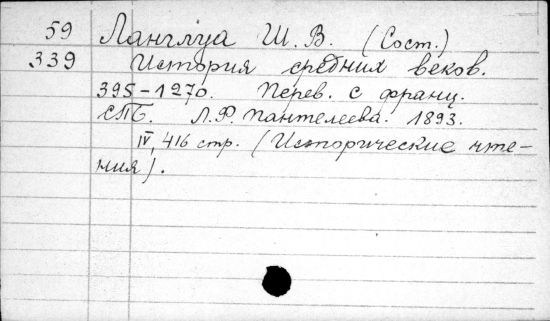 59 Ланглуа Ш. В. (Сост.)
339 История средних веков.
395-1270. Перев. с франц.
СПБ. Л.Ф. Пантелеева. 1893.
IV, 416 стр. (Исторические чте-
ния).